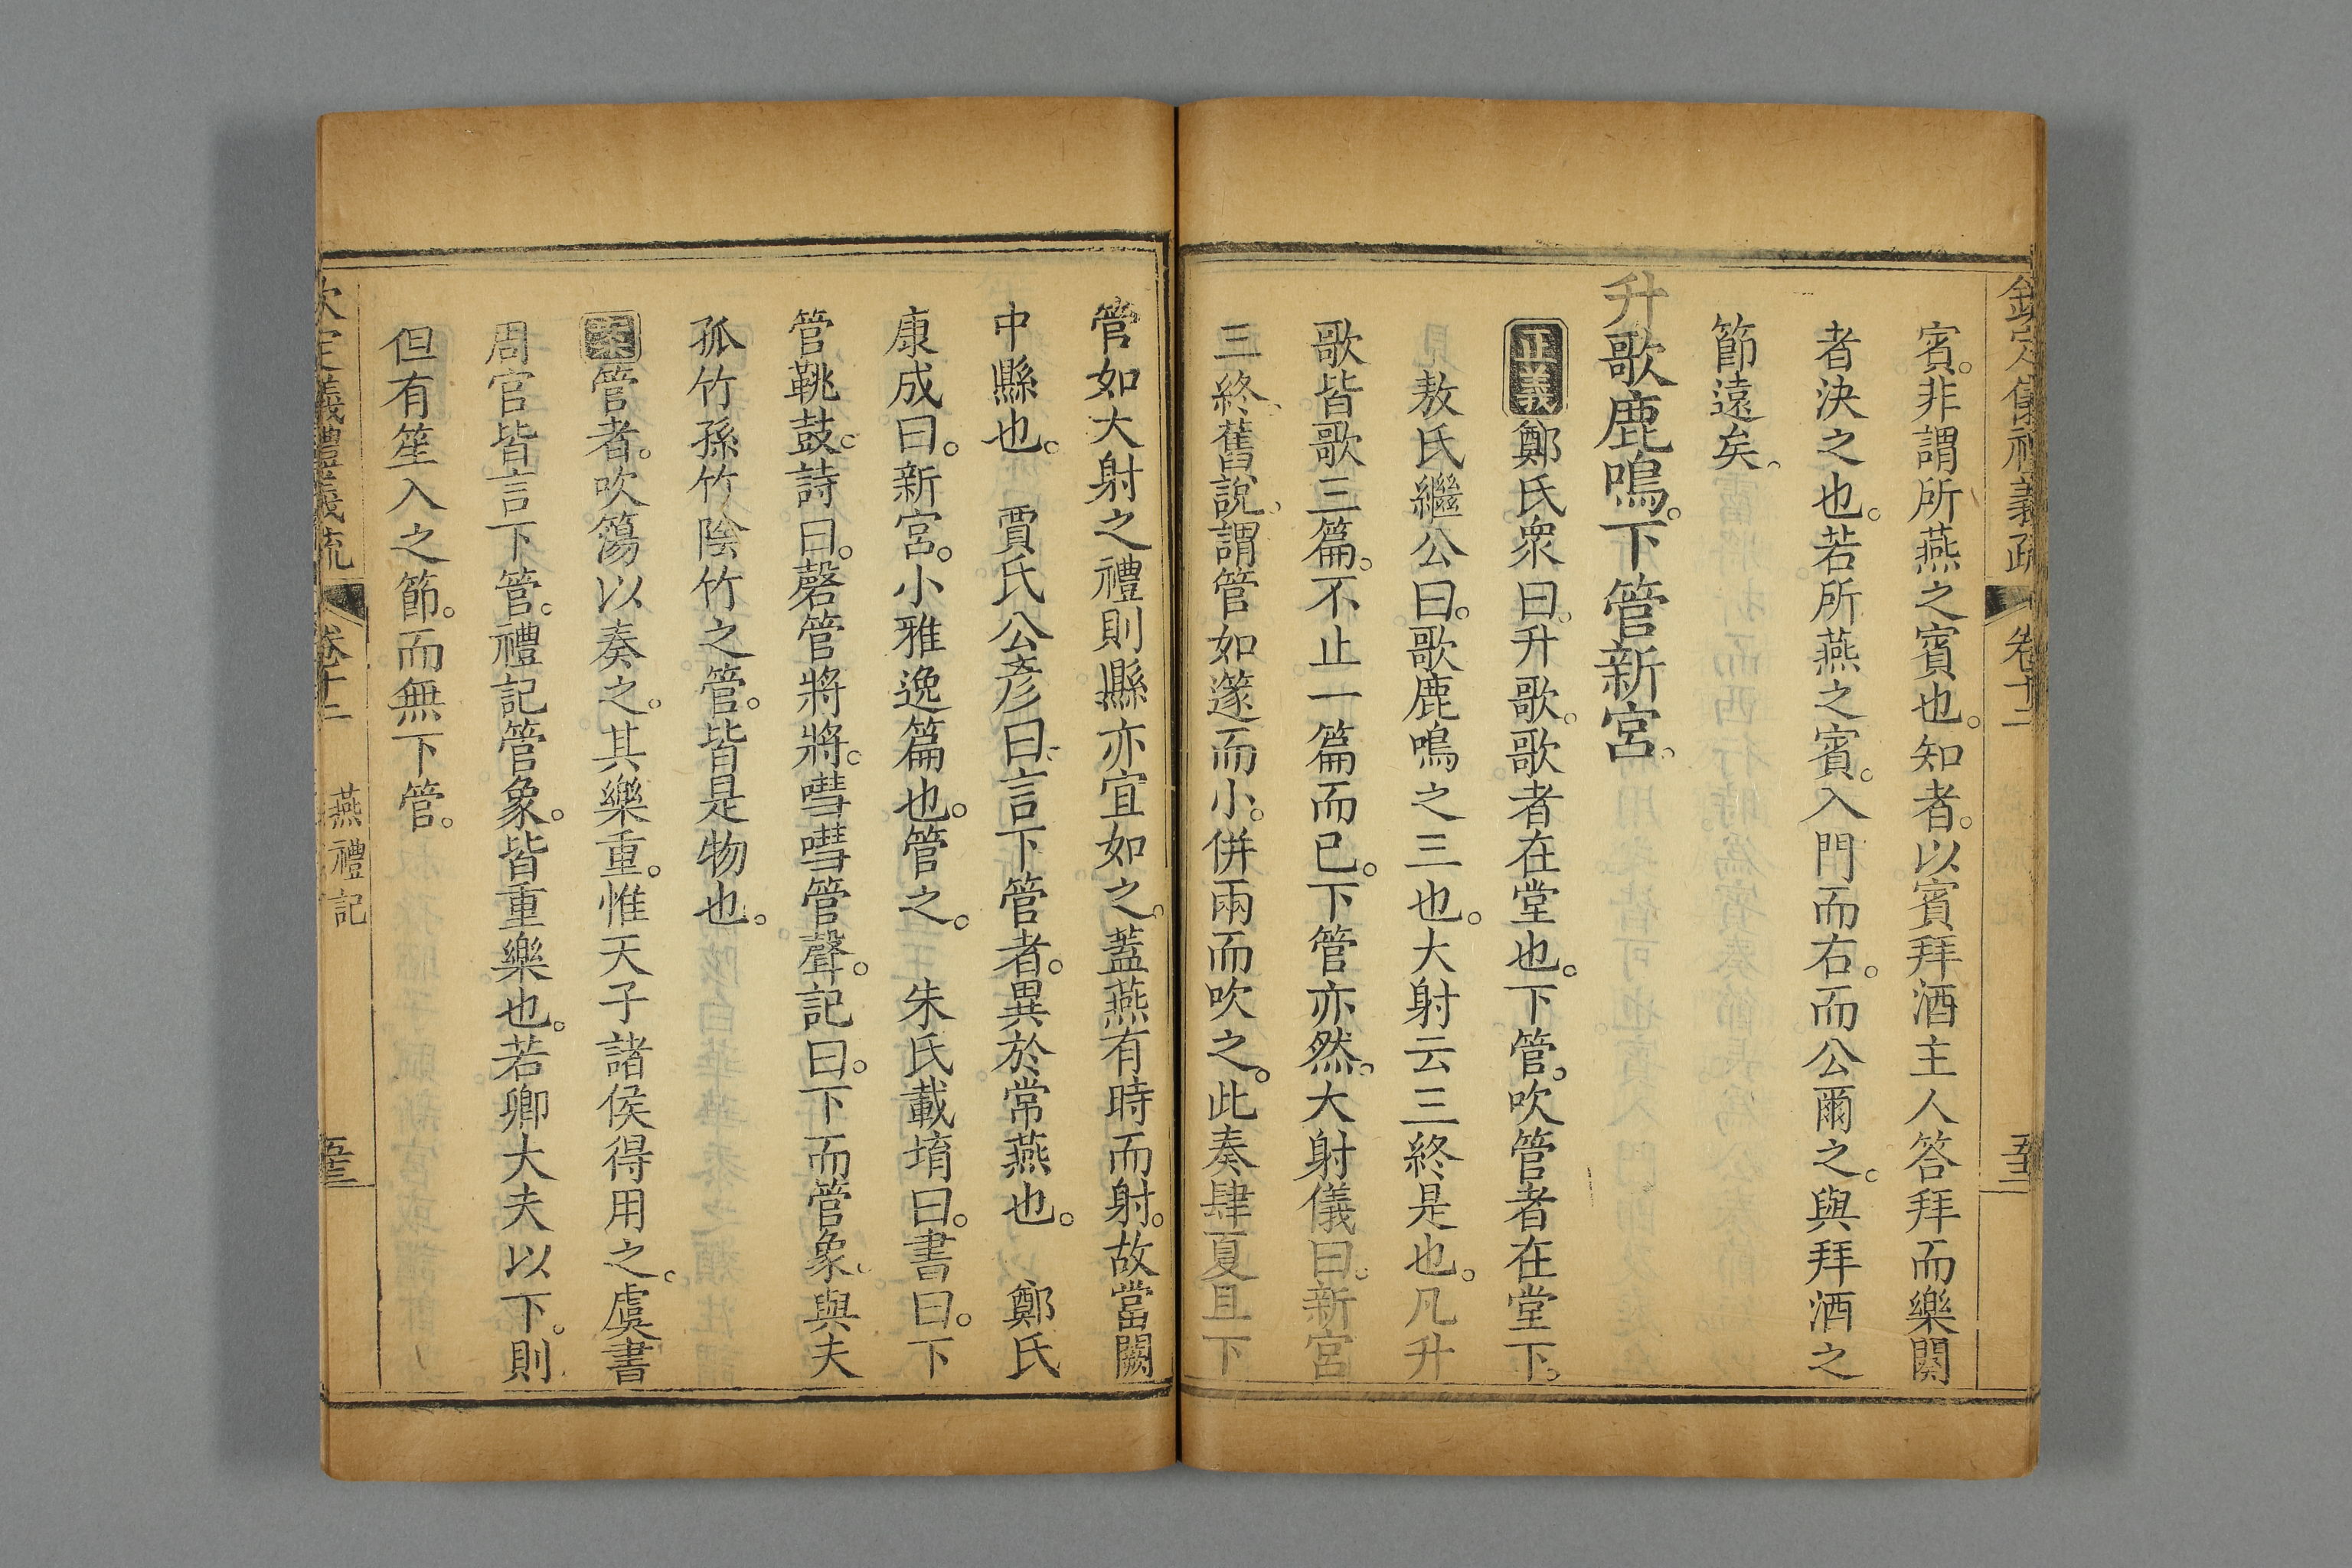 欽定儀禮義疏 卷十二 五十二
賓。非謂所燕之賓也。知者。以賓拜酒主人答拜而樂闋
者決之也。若所燕之賓。入門而右。而公爾之。與拜洒之
節遠矣。
升歌鹿鳴。下管新宮。
正義鄭氏衆曰。升歌。歌者在堂也。下管。吹管者在堂下。
敖氏繼公曰。歌鹿鳴之三也。大射云三終是也。凡升
歌皆歌三篇。不止一篇而已。下管亦然。大射儀曰。新宮
三終。舊說。謂管如篴而小。併兩而吹之。此奏肆夏且下
管如大射之禮則縣亦宜如之。蓋燕有時而射。故當闕
中縣也。 賈氏公彥曰。言下管者。異於常燕也。 鄭氏
康成曰。新宮。小雅逸篇也。管之。 朱氏載堉曰。書曰。下
管鼗鼓。詩曰。磬管將將。嘒嘒管聲。記曰。下而管象。與夫
孤竹孫竹陰竹之管。皆是物也。
案管者。吹簜以奏之。其樂重。惟天子諸侯得用之。虞書
周官皆言下管。禮記管象。皆重樂也。若卿大夫以下。則
但有笙入之節。而無下管。
欽定儀禮義疏 卷十二 燕禮記